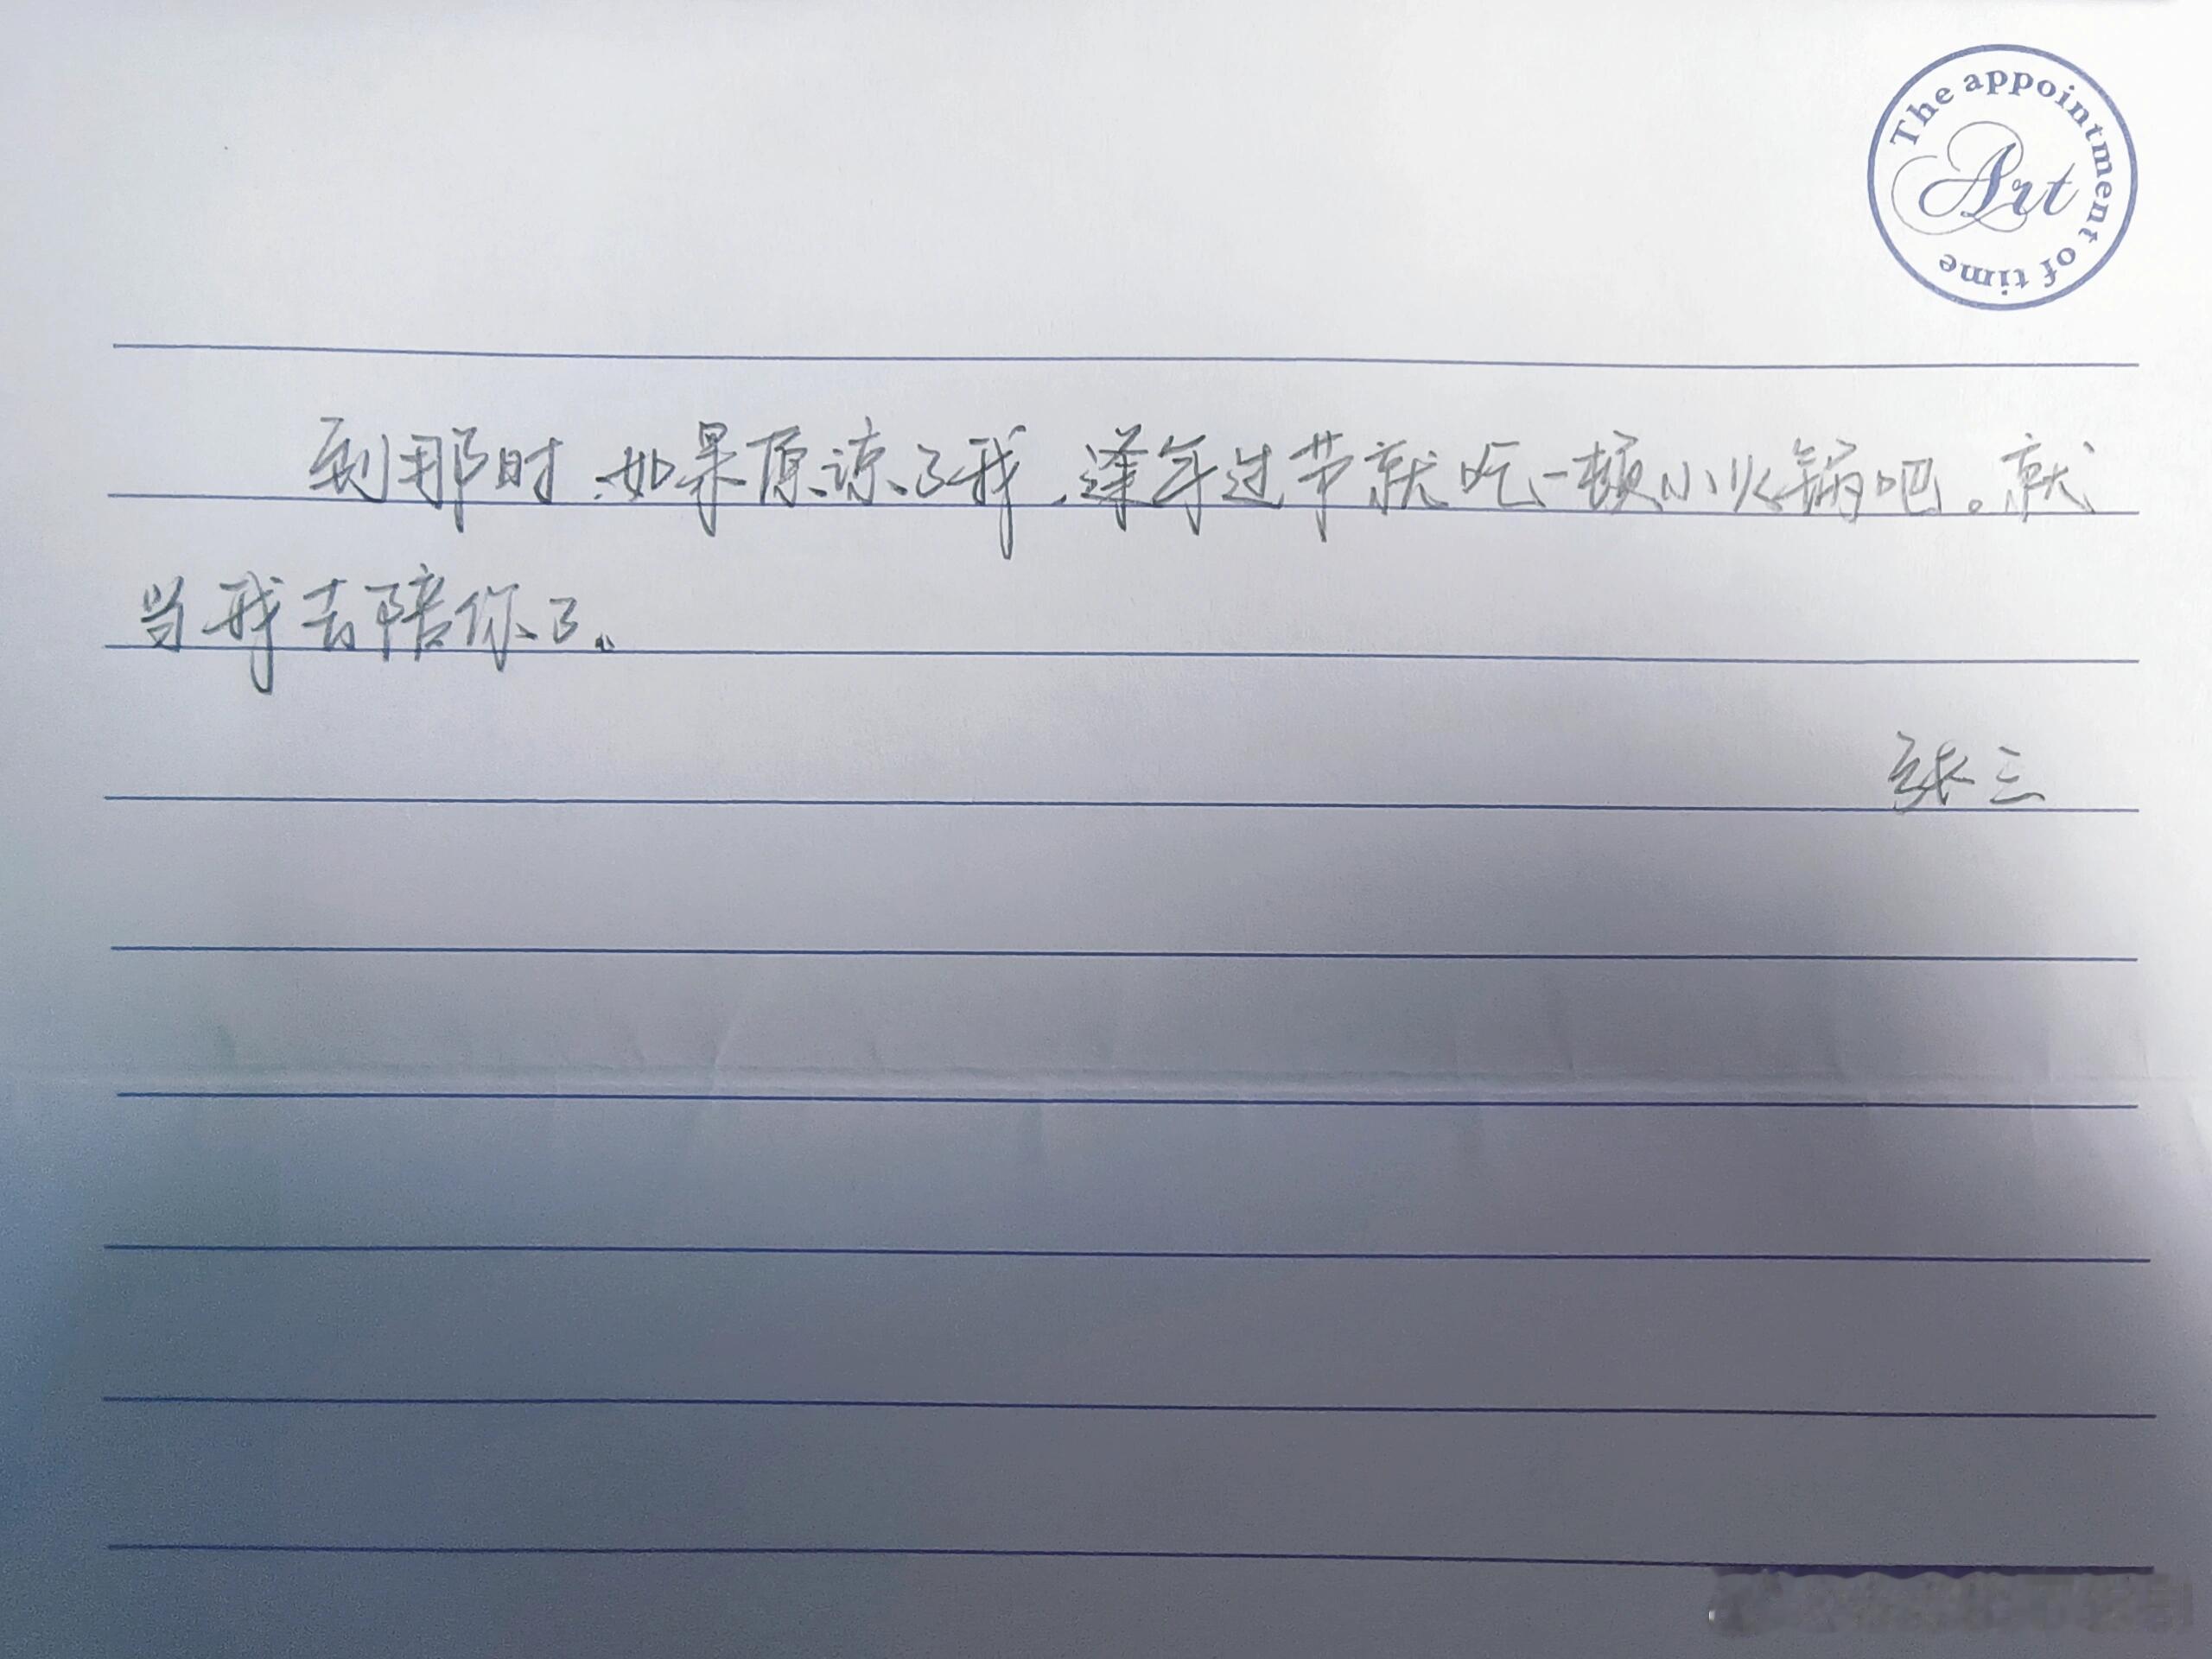 The appointment of time
Art
到那时,如果原谅了我,逢年过节就吃一顿小火锅吧。就
当我去陪你了。
张三